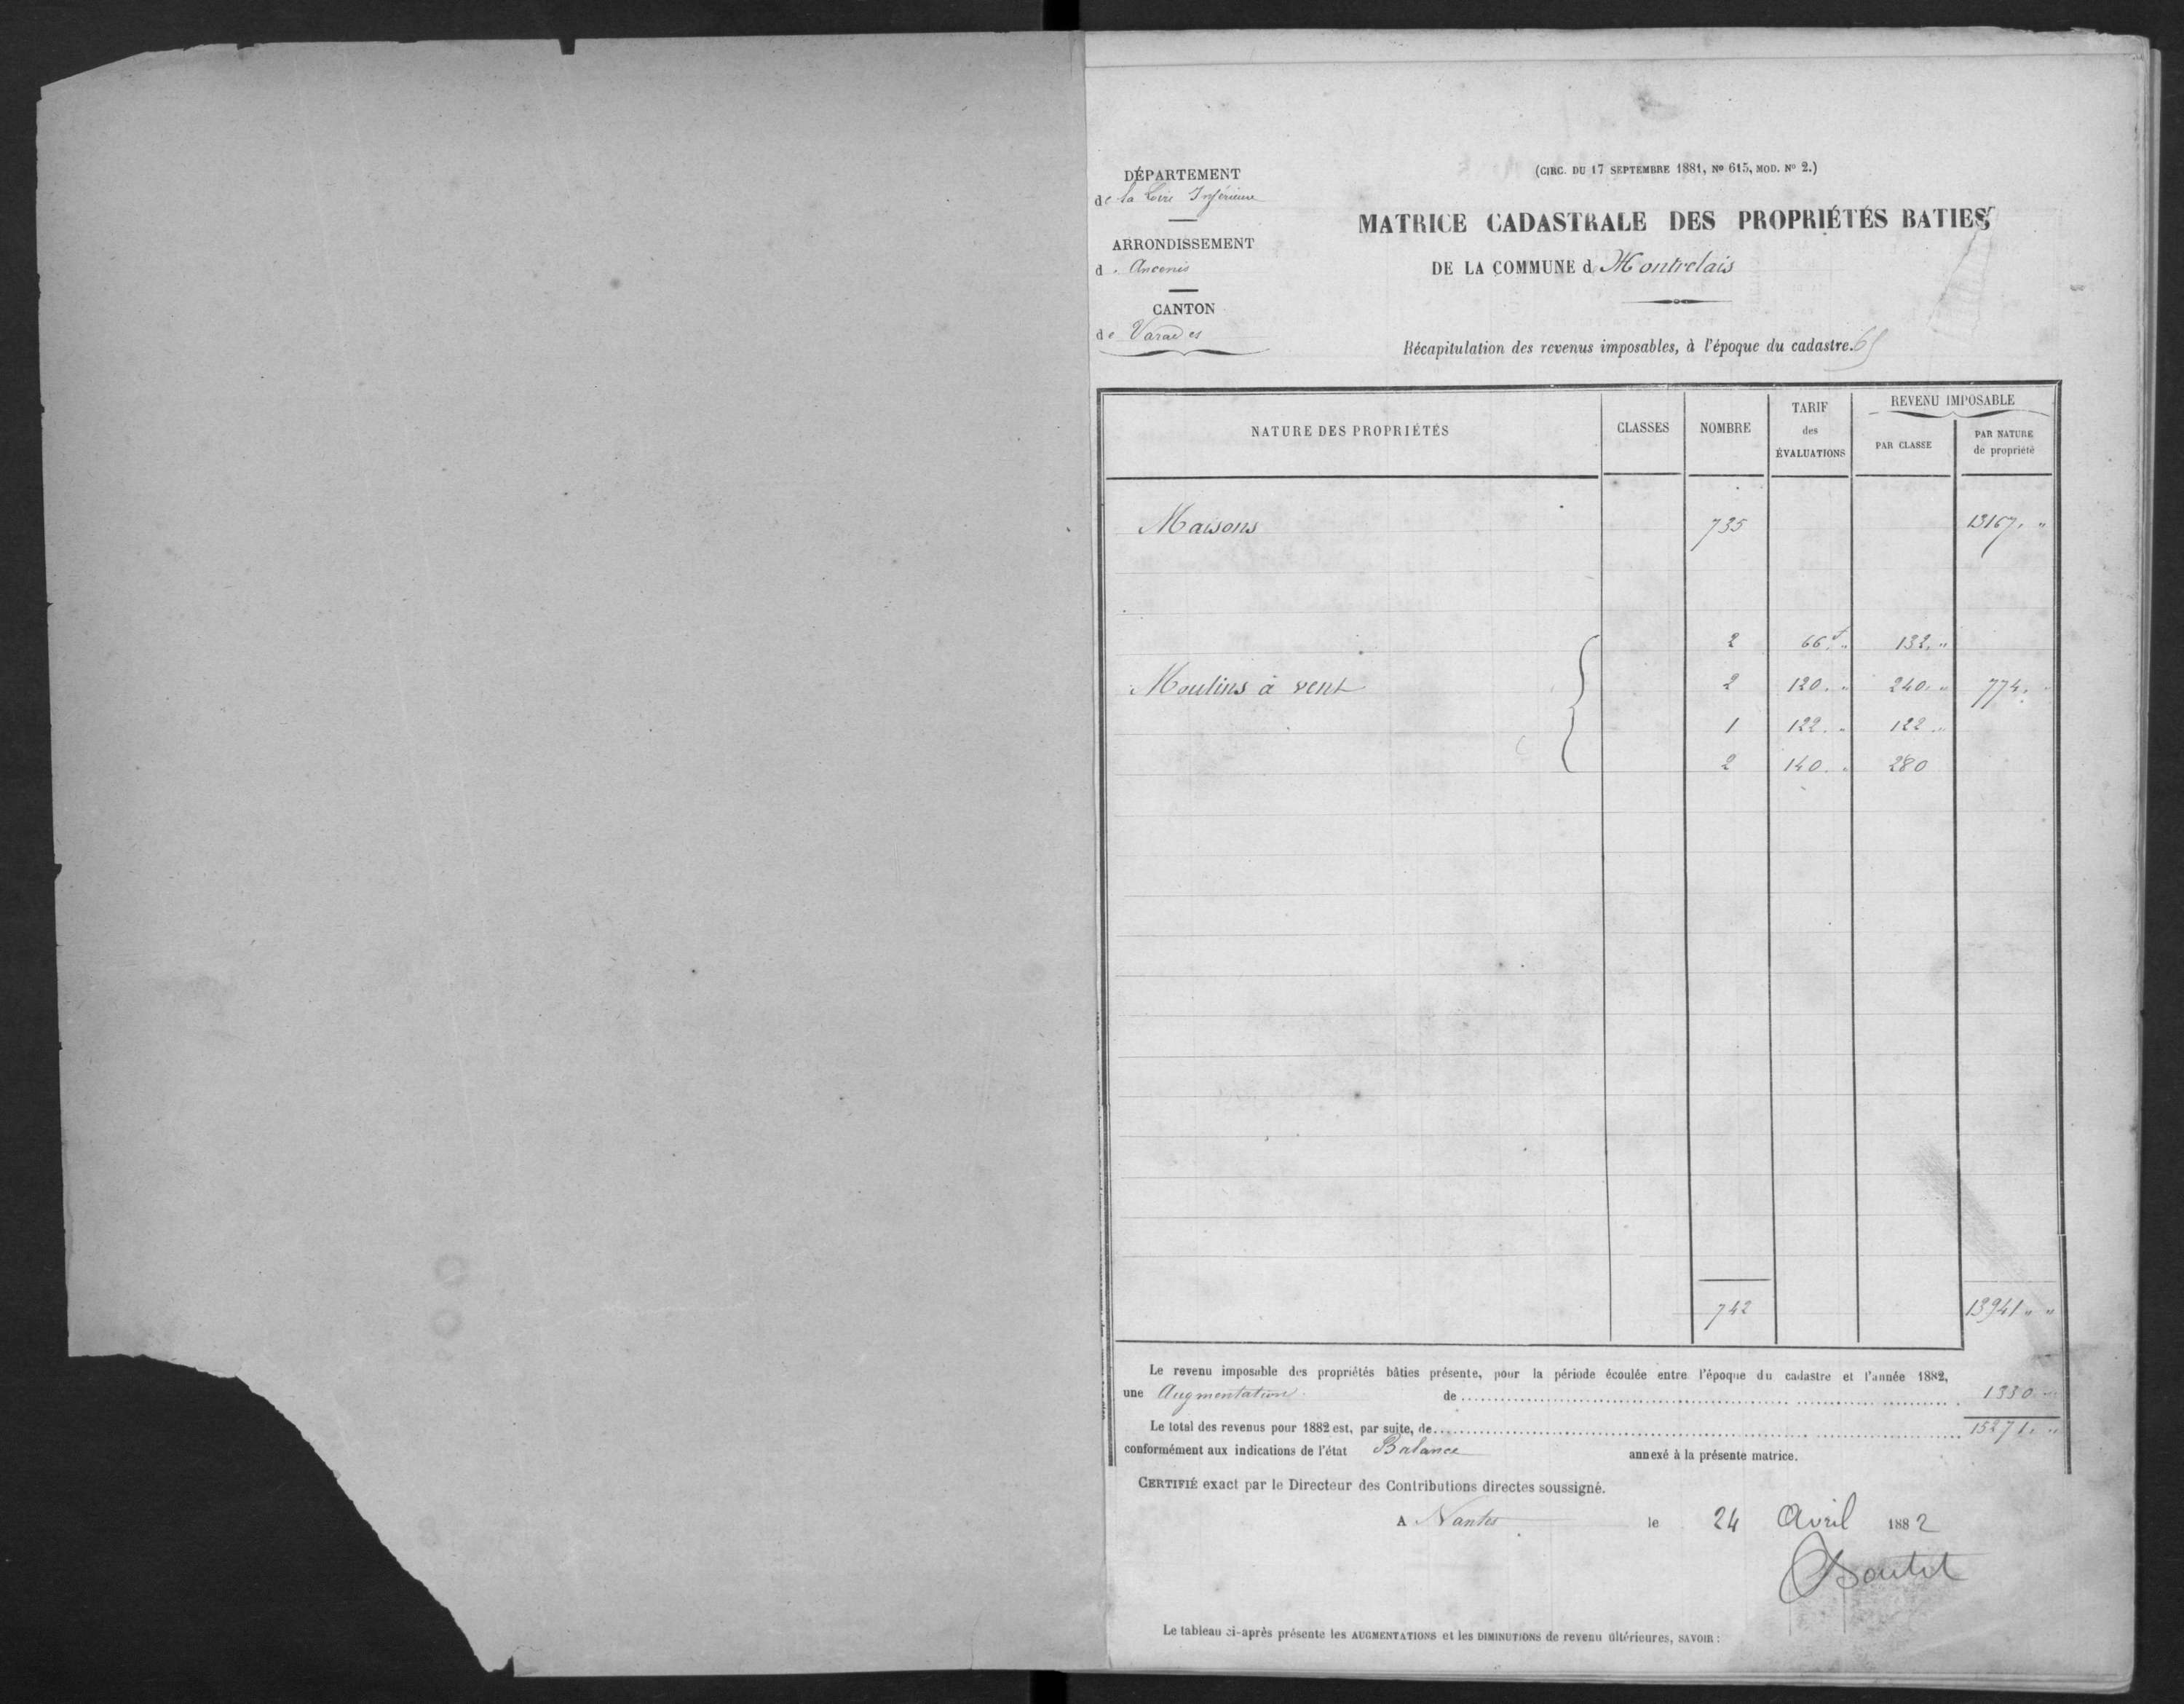 DÉPARTEMENT
de la Loire Inférieure
ARRONDISSEMENT
d. Ancenis
CANTON
de Varades
(CIRC. DU 17 SEPTEMBRE 1881, No 615, MOD. No 2.)
MATRICE CADASTRALE DES PROPRIÉTÉS BATIES
DE LA COMMUNE d Montrelais
Récapitulation des revenus imposables, à l'époque du cadastre.
NATURE DES PROPRIÉTÉS CLASSES NOMBRE TARIF des ÉVALUATIONS REVENU IMPOSABLE PAR CLASSE PAR NATURE de propriété
Maisons 735 13167. "
2 66f. " 132. "
Moulins à vent 2 120. " 240. " 774. "
1 122. " 122. "
2 140. " 280
742 13941 " "
Le revenu imposable des propriétés bâties présente, pour la période écoulée entre l'époque du cadastre et l'année 1882,
une Augmentation de 1330 "
Le total des revenus pour 1882 est, par suite, de 15271. "
conformément aux indications de l'état Balance annexé à la présente matrice.
CERTIFIÉ exact par le Directeur des Contributions directes soussigné.
A Nantes le 24 Avril 1882
Boutet
Le tableau ci-après présente les AUGMENTATIONS et les DIMINUTIONS de revenu ultérieures, SAVOIR :